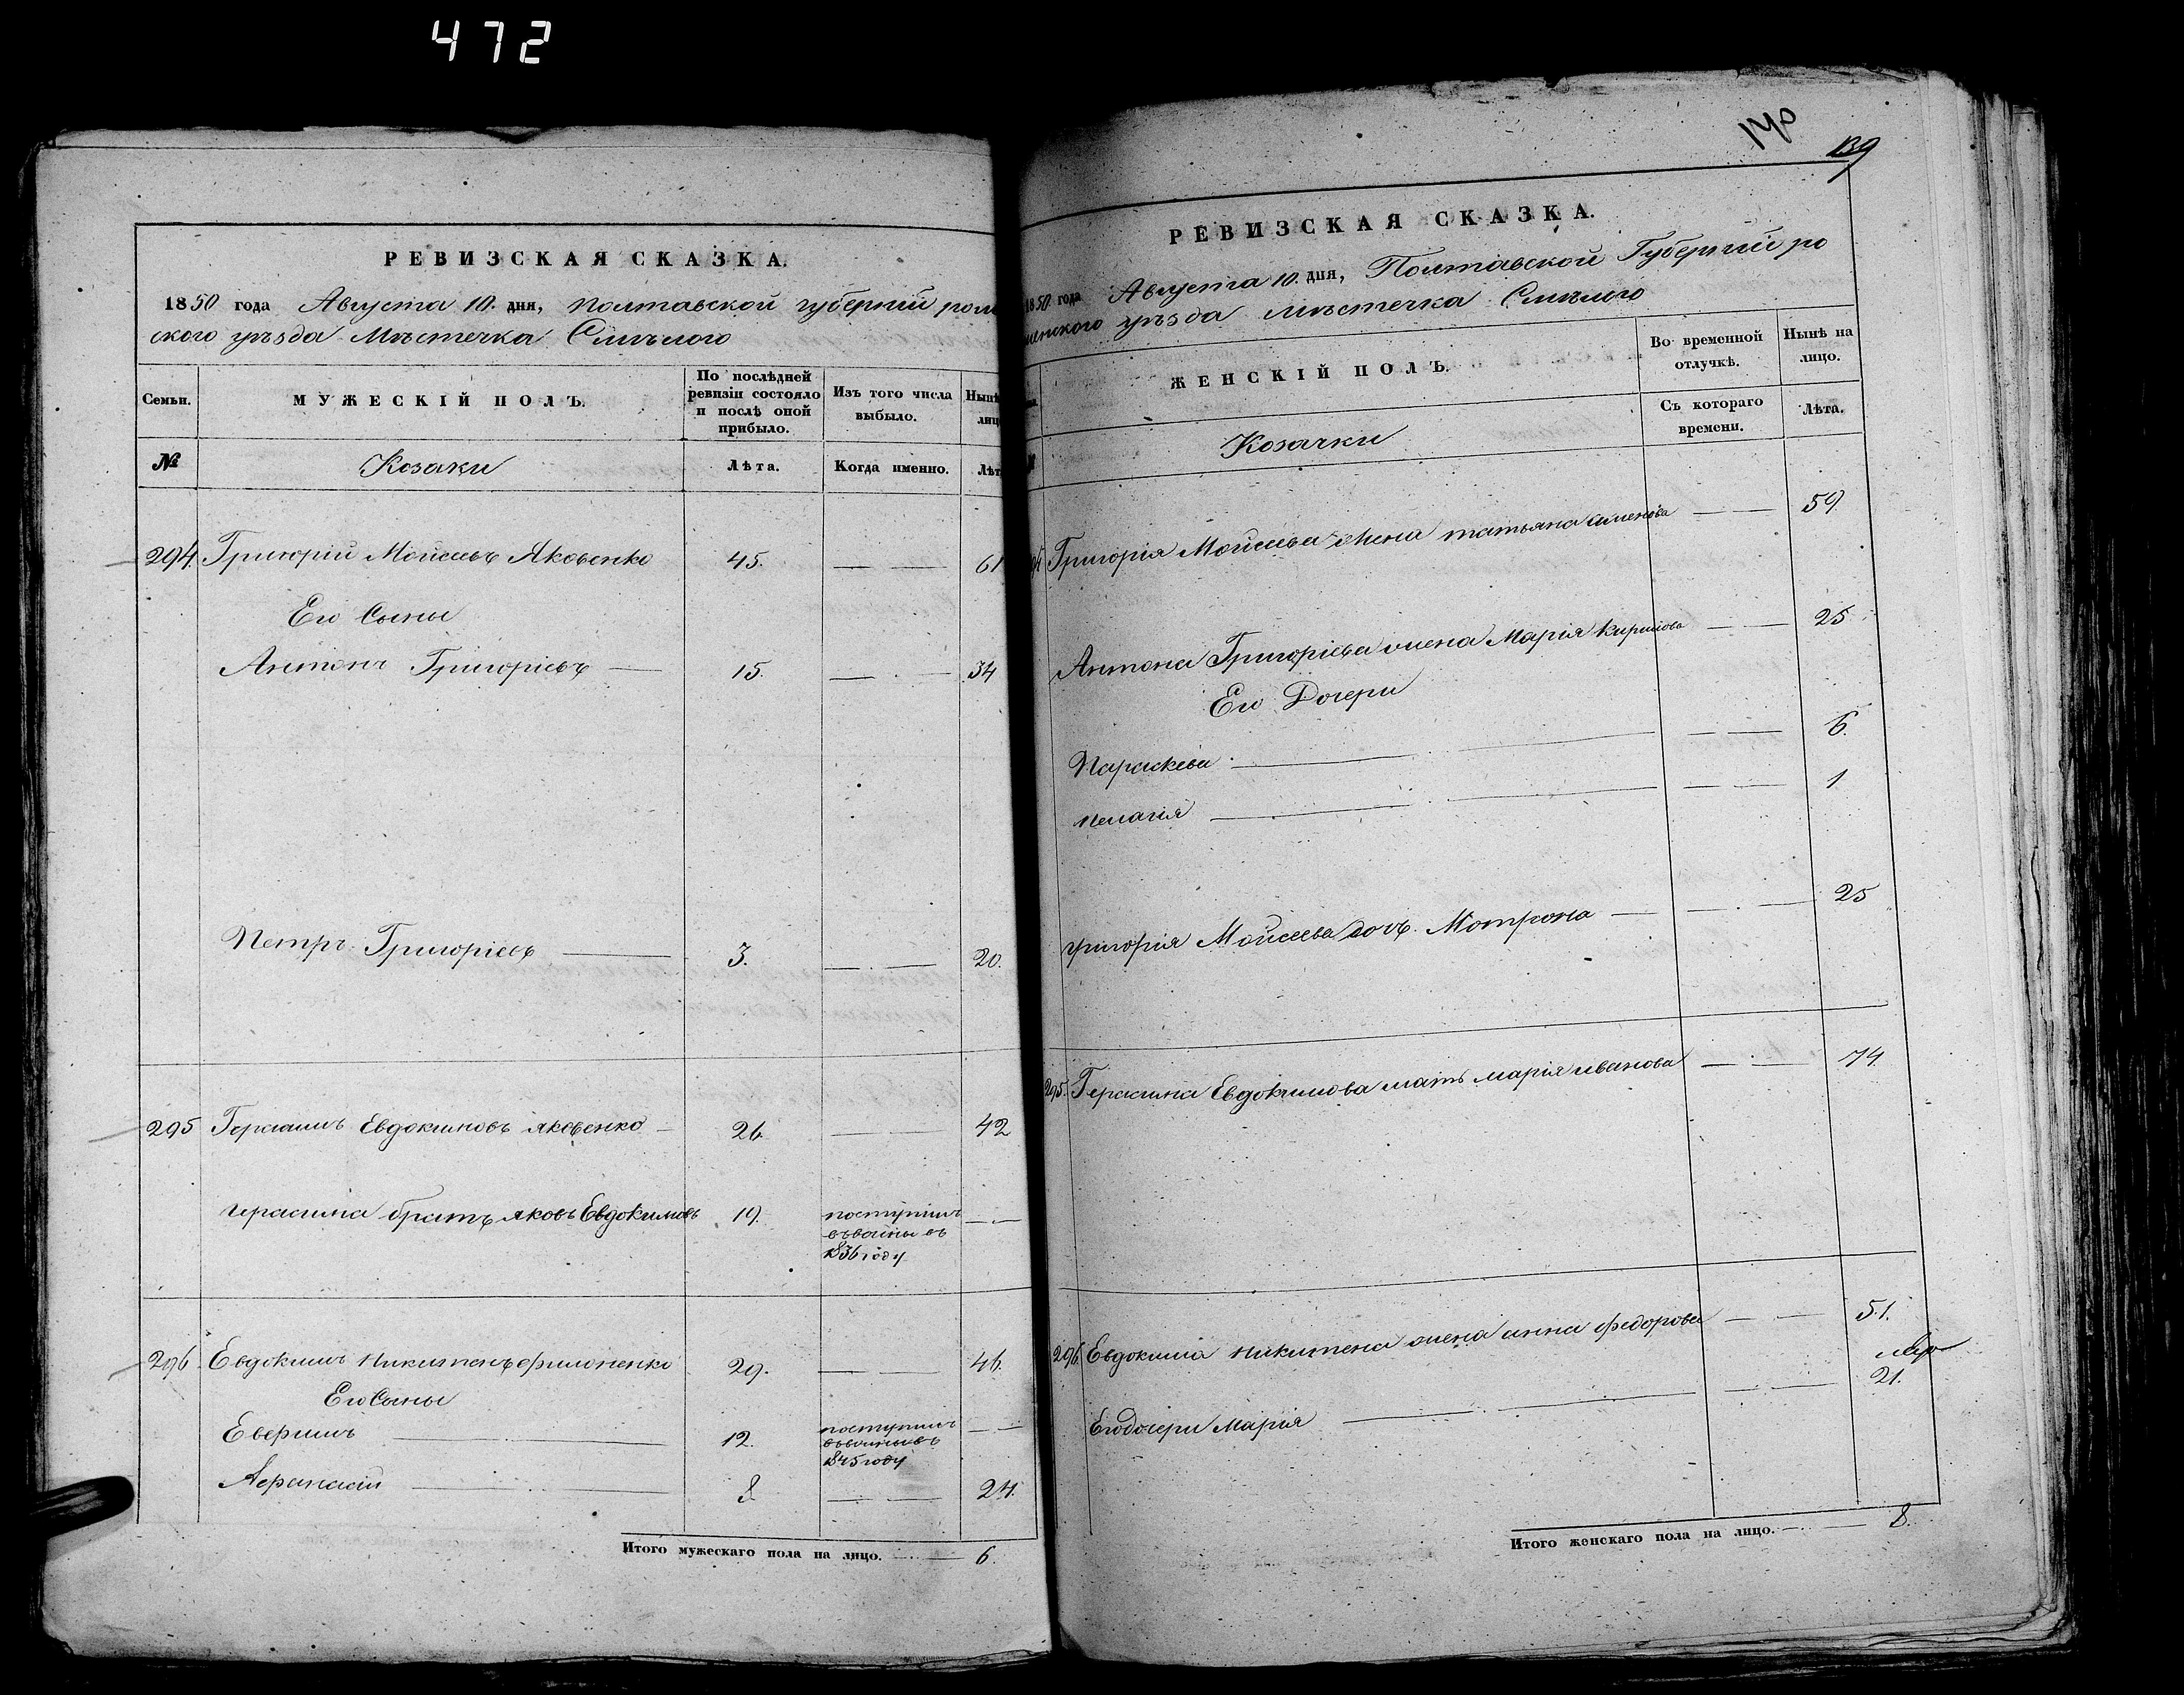 472
РЕВИЗСКАЯ СКАЗКА.
1850 года Августа 10. дня, полтавской губерній ром
ского уѣзда Мѣстечка Смѣлого
Семьи.
МУЖЕСКІЙ ПОЛЪ.
По послѣдней ревизіи состояло и послѣ оной прибыло.
Изъ того числа выбыло.
Нынѣ лиц
№ Козаки Лѣта. Когда именно. Лѣт
294. Григорій Мойсеевъ Яковенко 45. — — 61
Его Сыны
Антонъ Григоріевъ — 15. — — 34
Петръ Григоріевъ — 3. — — 20.
295 Герасимъ Евдокимовъ яковенко — 26. — 42
герасима братъ яковъ Евдокимовъ 19. поступилъ — —
въ
1836 году
296 Евдокимъ Никитенъ филоненко 29. — — 46.
Его Сыны
Евфимъ — 12. поступилъ — —
1845 году
Афанасій — 8 — — 24.
Итого мужескаго пола на лицо. — — 6.
140
139
РЕВИЗСКАЯ СКАЗКА.
1850 года Августа 10. дня, Полтавской Губерній ро
менского уѣзда мѣстечка Смѣлого
ЖЕНСКІЙ ПОЛЪ.
Во временной отлучкѣ.
Нынѣ на лицо.
Съ котораго времени.
Лѣта.
№ Козачки
94 Григорія Мойсеева жена татьяна семенова — — 59.
Антона Григоріева жена Марія Кирилова — — 25
Его Дочери
Параскева — — — 6.
пелагія — — — 1
григорія Мойсеева дочъ Мотрона — — — 25
295. Герасима Евдокимова мать марія иванова — — 74.
296. Евдокима никитена жена анна федорова — — 51.
Его дочери Марія — — — 21.
Итого женскаго пола на лицо. — — 8.